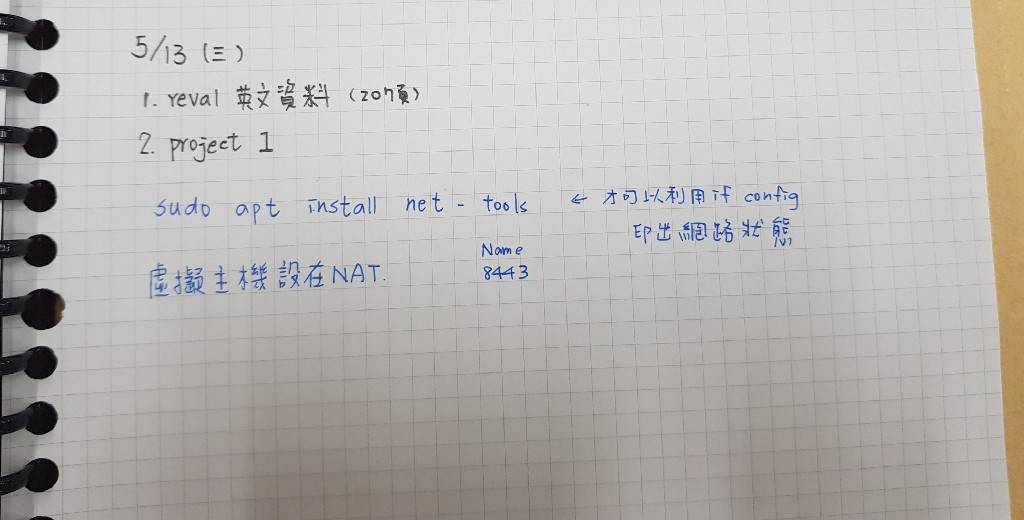 5/13 (三)
1. reval 英文資料 (207頁)
2. project 1
sudo apt install net - tools ← 才可以利用 if config
印出網路狀態
Name
虛擬主機設在NAT. 8443